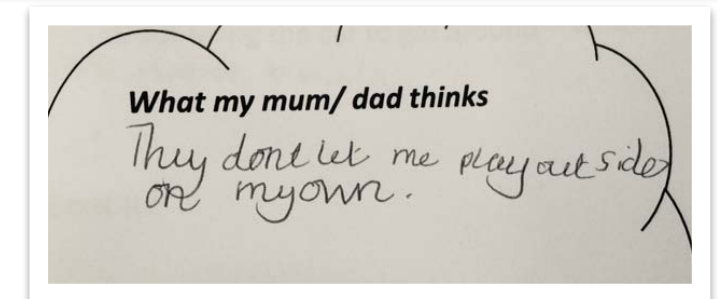 What my mum/ dad thinks
They dont let me play out side
on my own.